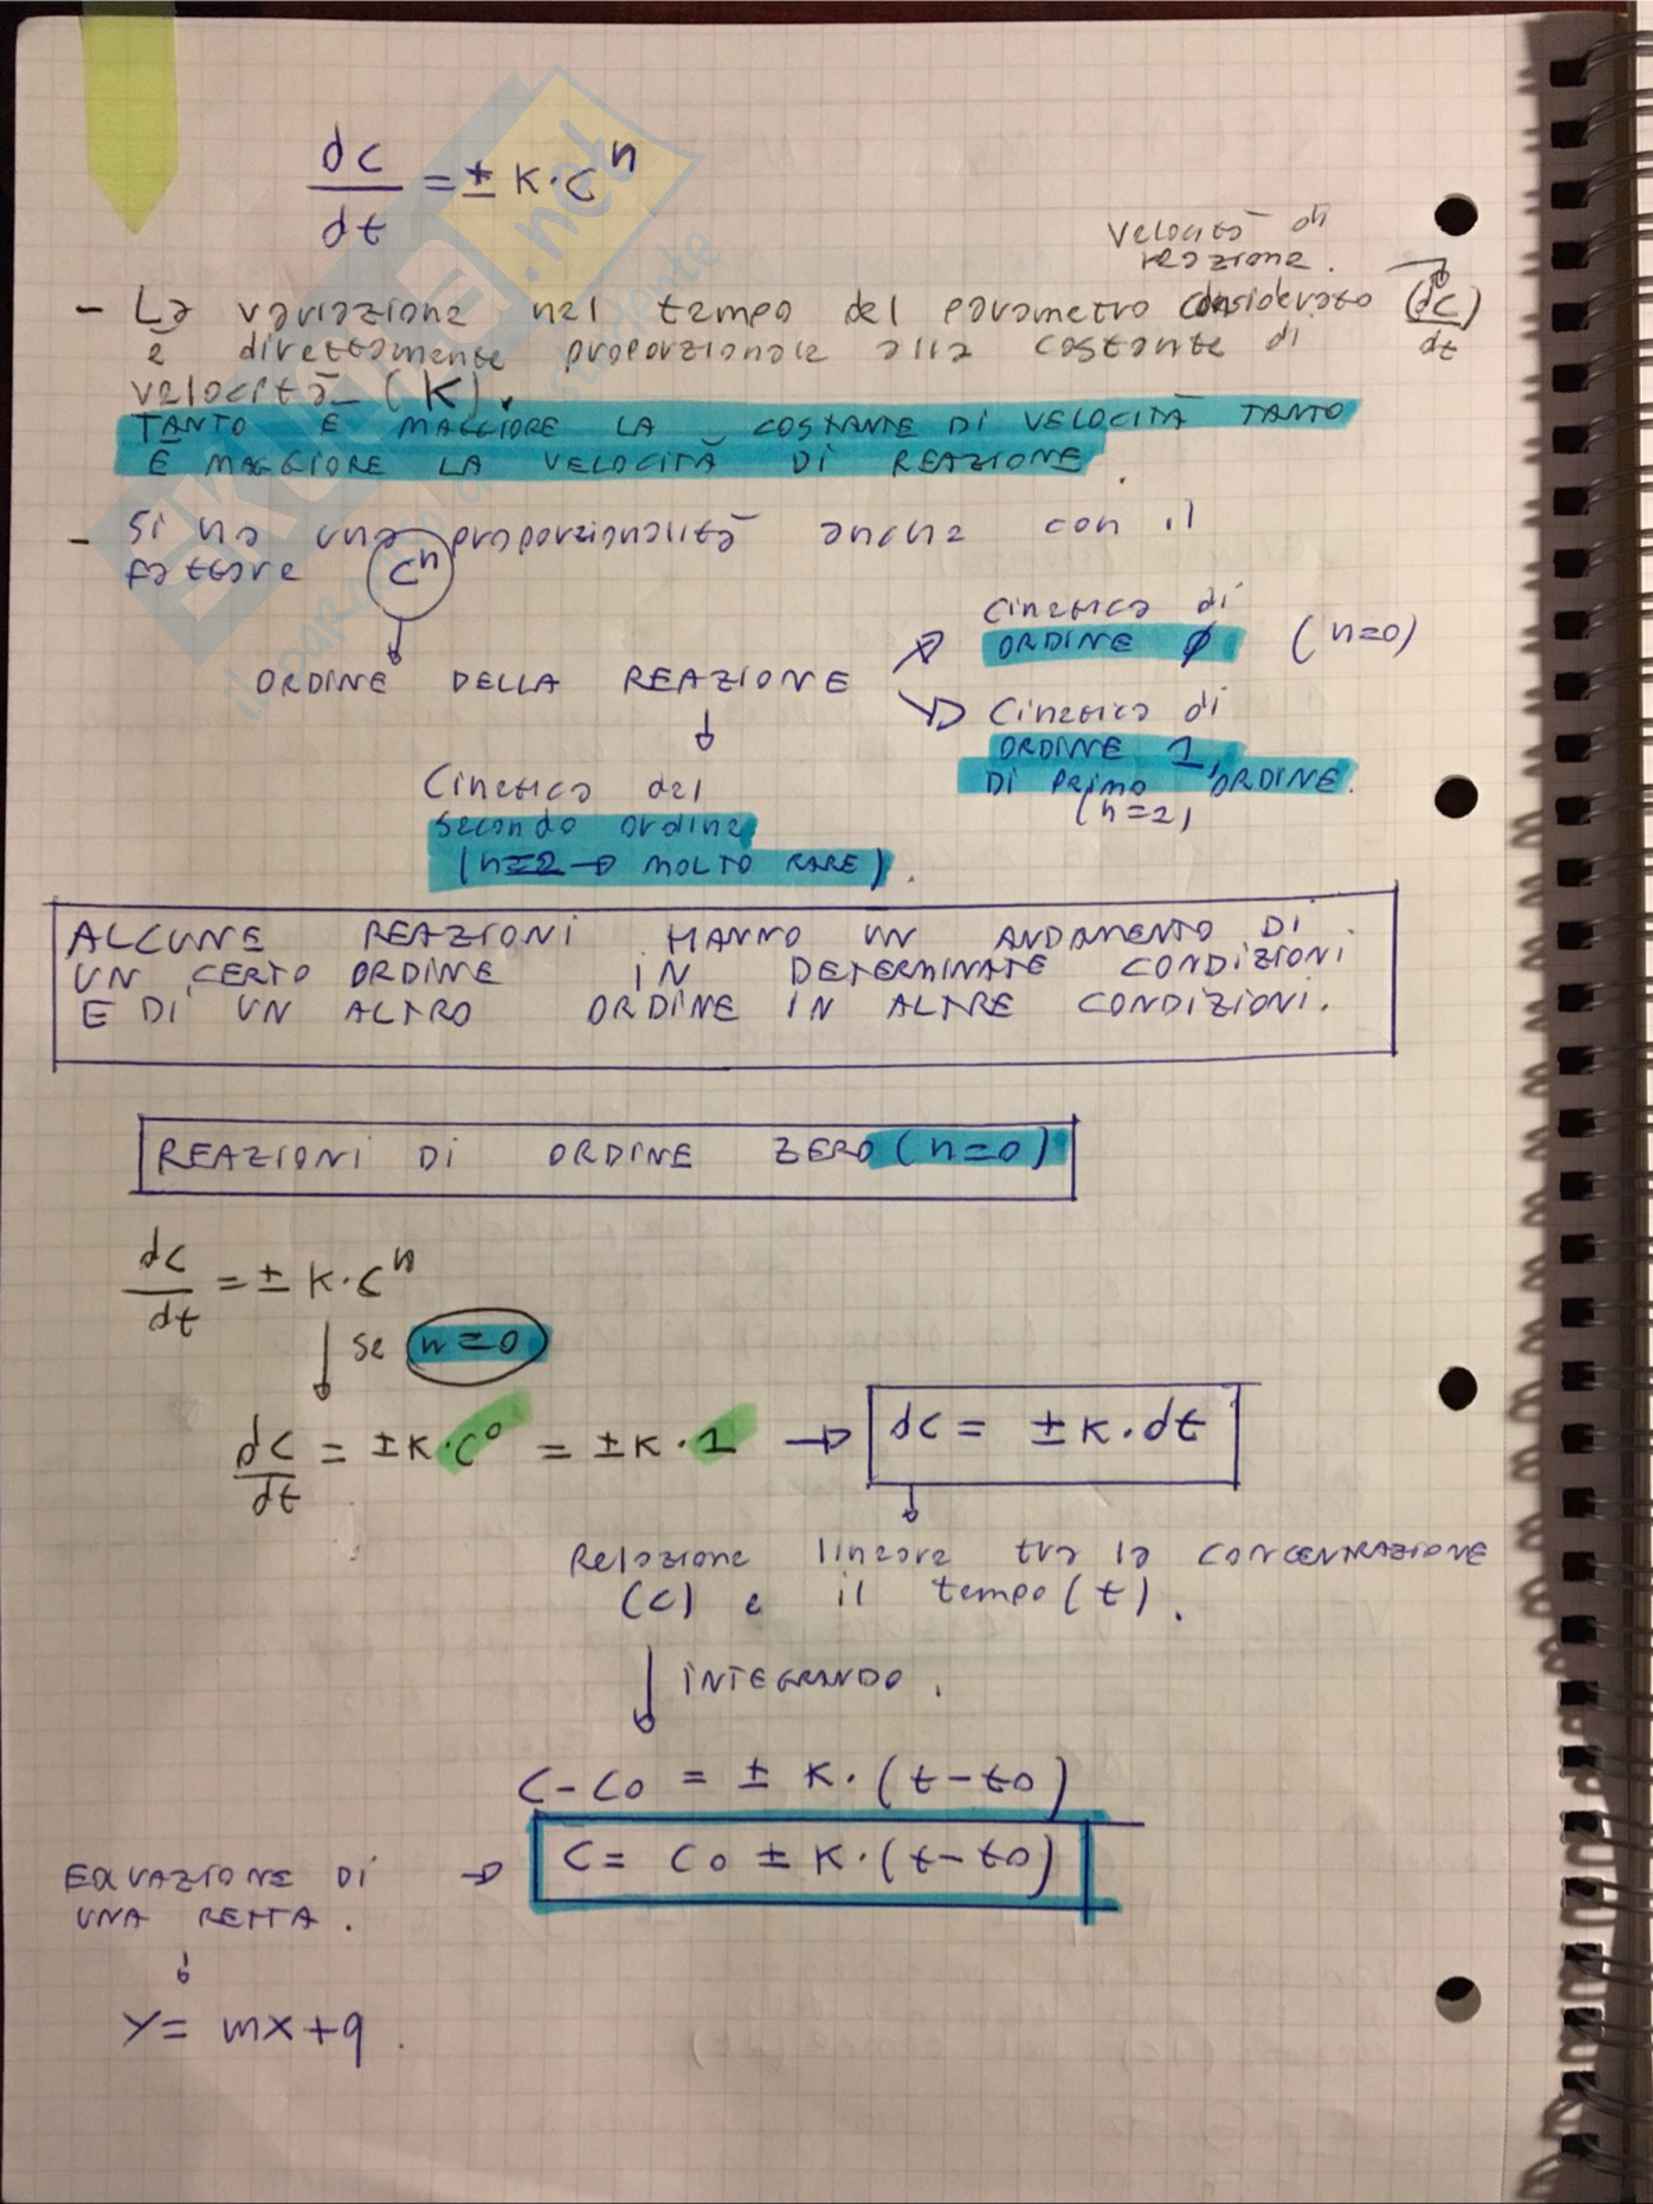 dc/dt = ± K·C^n
Velocità di
reazione.
- La variazione nel tempo del parametro considerato (dc/dt)
è direttamente proporzionale alla costante di
velocità (K).
TANTO È MAGGIORE LA COSTANTE DI VELOCITÀ TANTO
È MAGGIORE LA VELOCITÀ DI REAZIONE.
- Si ha una proporzionalità anche con il
fattore C^n
Cinetica di
ORDINE 0 (n=0)
ORDINE DELLA REAZIONE
Cinetica di
ORDINE 1,
DI PRIMO ORDINE.
(n=1)
Cinetica del
secondo ordine
(n=2 → MOLTO RARE).
ALCUNE REAZIONI HANNO UN ANDAMENTO DI
UN CERTO ORDINE IN DETERMINATE CONDIZIONI
E DI UN ALTRO ORDINE IN ALTRE CONDIZIONI.
REAZIONI DI ORDINE ZERO (n=0)
dc/dt = ± K·C^n
↓ se n=0
dc/dt = ±K·C^0 = ±K·1 → dc = ±K·dt
Relazione lineare tra la CONCENTRAZIONE
(C) e il tempo (t).
↓ INTEGRANDO.
C-C0 = ± K·(t-t0)
EQUAZIONE DI → C = C0 ± K·(t-t0)
UNA RETTA.
↓
Y = mx+q.